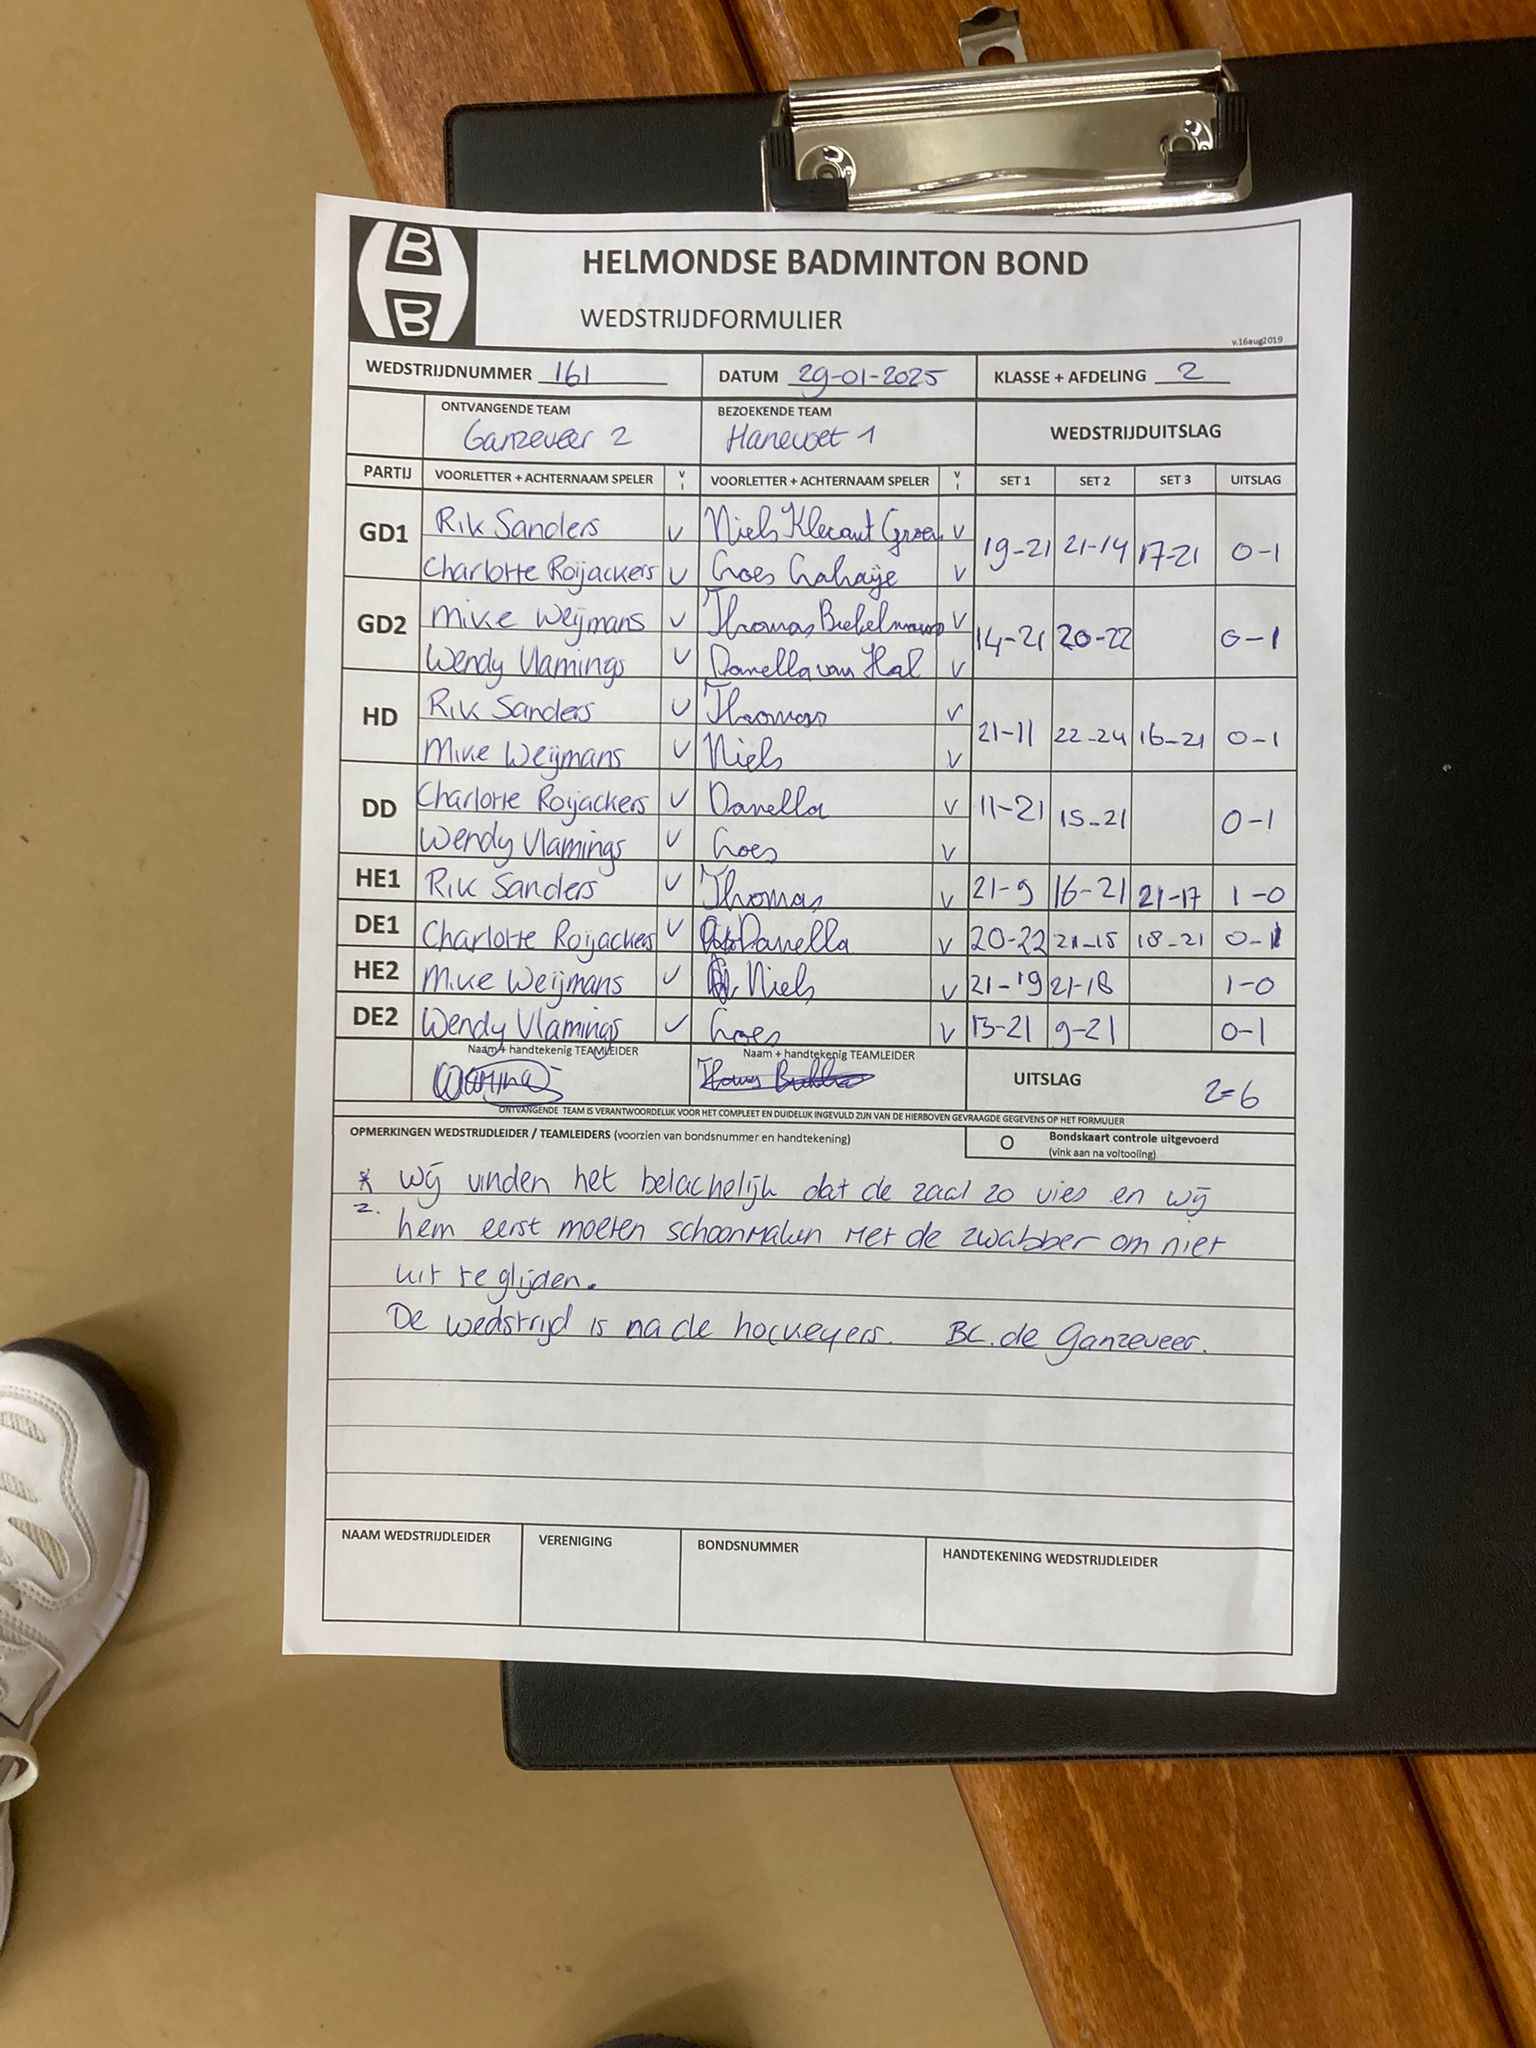 B
B
HELMONDSE BADMINTON BOND
WEDSTRIJDFORMULIER
v.16aug2019
WEDSTRIJDNUMMER 161 DATUM 29-01-2025 KLASSE + AFDELING 2
ONTVANGENDE TEAM BEZOEKENDE TEAM
Ganzeveer 2 Hanevoet 1 WEDSTRIJDUITSLAG
PARTIJ VOORLETTER + ACHTERNAAM SPELER V I VOORLETTER + ACHTERNAAM SPELER V I SET 1 SET 2 SET 3 UITSLAG
Rik Sanders V Niels V
GD1 19-21 21-14 17-21 0-1
Charlotte Roijackers V Loes V
Mike Weijmans V Thomas V
GD2 14-21 20-22 0-1
Wendy Vlamings V Danella van Hal V
Rik Sanders V Thomas V
HD 21-11 22-24 16-21 0-1
Mike Weijmans V Niels V
Charlotte Roijackers V Danella V
DD 11-21 15-21 0-1
Wendy Vlamings V Loes V
HE1 Rik Sanders V Thomas V 21-9 16-21 21-17 1-0
DE1 Charlotte Roijackers V Danella V 20-22 21-15 18-21 0-1
HE2 Mike Weijmans V Niels V 21-19 21-18 1-0
DE2 Wendy Vlamings V Loes V 13-21 9-21 0-1
Naam + handtekenig TEAMLEIDER Naam + handtekenig TEAMLEIDER
UITSLAG 2-6
ONTVANGENDE TEAM IS VERANTWOORDELIJK VOOR HET COMPLEET EN DUIDELIJK INGEVULD ZIJN VAN DE HIERBOVEN GEVRAAGDE GEGEVENS OP HET FORMULIER
OPMERKINGEN WEDSTRIJDLEIDER / TEAMLEIDERS (voorzien van bondsnummer en handtekening) O Bondskaart controle uitgevoerd
(vink aan na voltooling)
* wij vinden het belachelijk dat de zaal zo vies en wij
2. hem eerst moeten schoonmaken met de zwabber om niet
uit te glijden.
De wedstrijd is na de hockeyers. BC. de Ganzeveer.
NAAM WEDSTRIJDLEIDER VERENIGING BONDSNUMMER HANDTEKENING WEDSTRIJDLEIDER